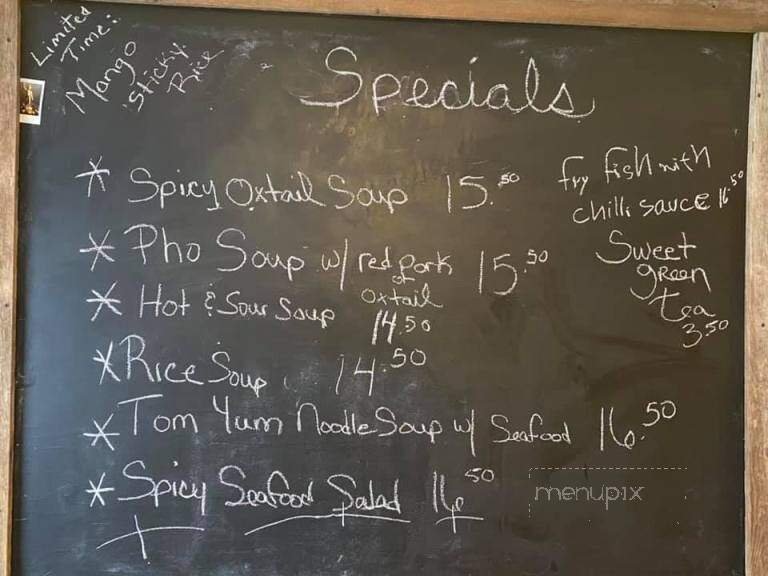 Limited
Time:
Mango
Sticky
Rice
Specials
* Spicy Oxtail Soup 15.50
* Pho Soup w/ red pork 15.50
or
oxtail
* Hot & Sour Soup 14.50
* Rice Soup 14.50
* Tom Yum Noodle Soup w/ Seafood 16.50
* Spicy Seafood Salad 16.50
fry fish with
chilli sauce 16.50
Sweet
green
tea
3.50
menupix